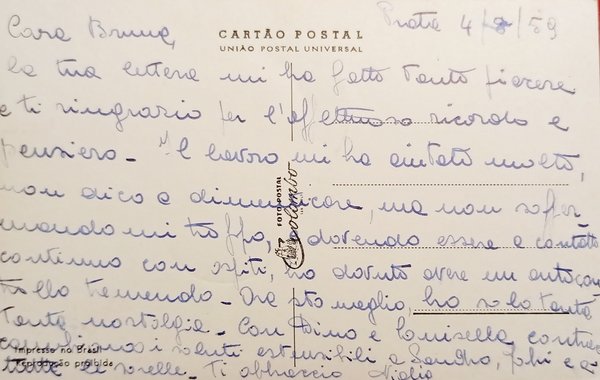 CARTÃO POSTAL
UNIÃO POSTAL UNIVERSAL
Prata 4/8/59
Cara Bruna,
la tua lettera mi ha fatto tanto piacere
e ti ringrazio per l'affettuoso ricordo e
pensiero - Il lavoro mi ha aiutato molto,
non dico a dimenticare, ma non soffer-
mandomi troppo, dovendo essere a contatto
continuo con ospiti, ho dovuto avere un autocon
trollo tremendo - Ora sto meglio, ho solo tanta
tanta nostalgia - Con Dino e Luisella contrac
cambiamo i saluti estensibili a Sandro, e a
tutte le sorelle - Ti abbraccio
FOTO POSTAL
Colombo
Impresso no Brasil
Reprodução proibida